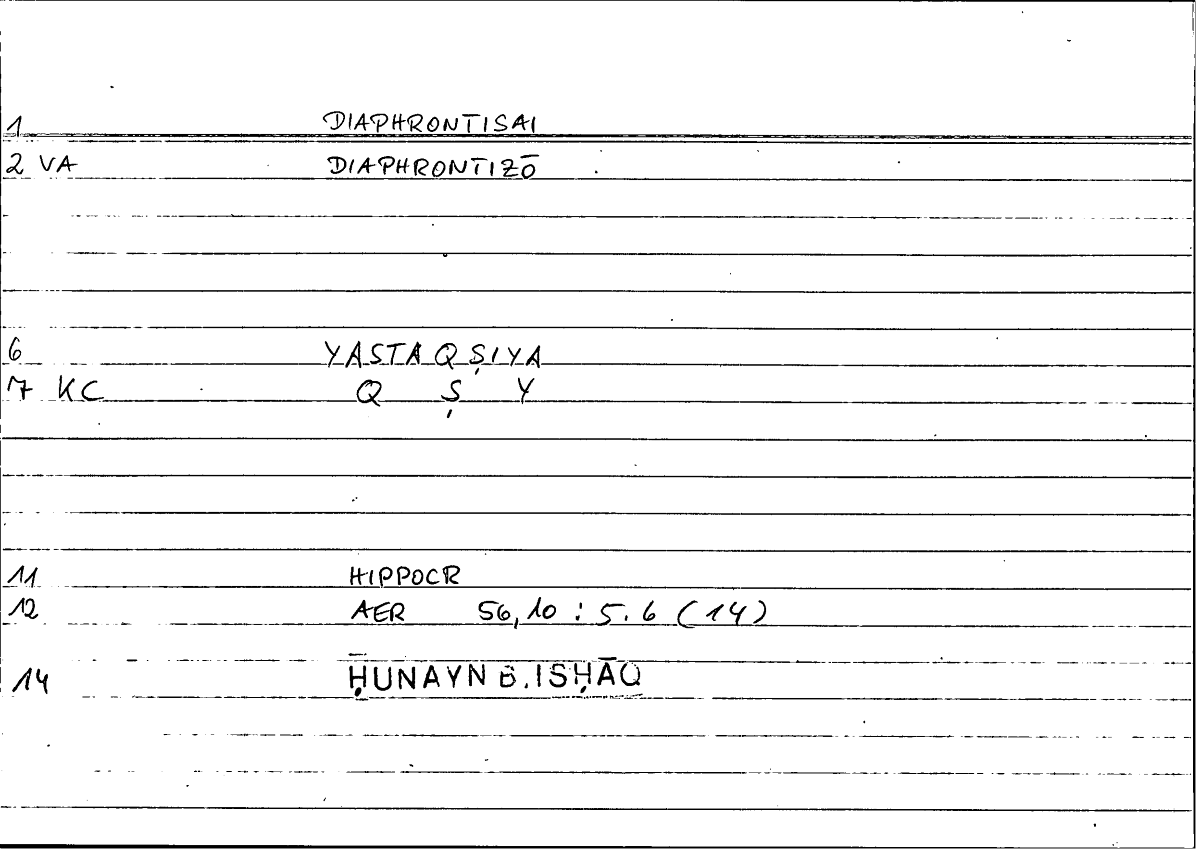 1 DIAPHRONTISAI
2 VA DIAPHRONTIZŌ
6 YASTAQṢIYA
7 KC Q Ṣ Y
11 HIPPOCR
12 AER 56,10 : 5.6 (14)
14 ḤUNAYN B. ISḤĀQ